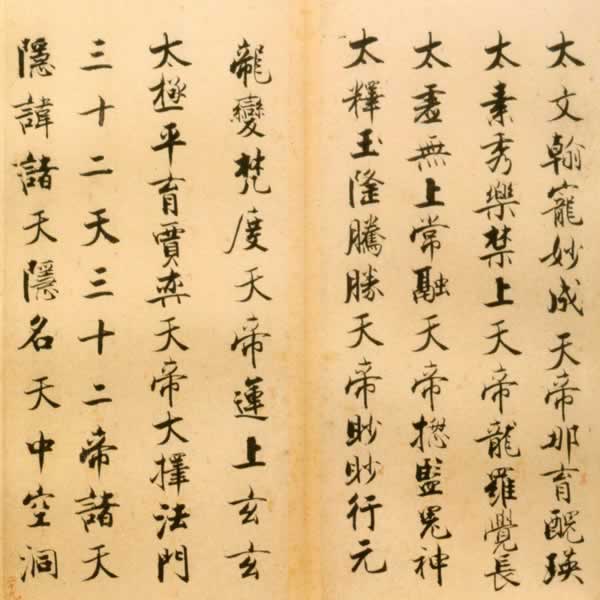 太文翰寵妙成天帝那育醜瑛
太素秀樂禁上天帝龍羅覺長
太虛無上常融天帝揔監鬼神
太釋玉隆騰勝天帝眇眇行元
龍變梵度天帝運上玄玄
太極平育賈奕天帝大擇法門
三十二天三十二帝諸天
隱諱諸天隱名天中空洞